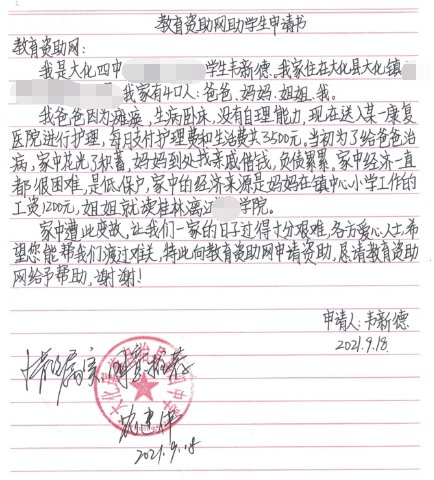 教育资助网助学生申请书
教育资助网:
我是大化四中 学生韦新德。我家住在大化县大化镇
我家有4口人:爸爸、妈妈、姐姐、我。
我爸爸因为瘫痪,生病卧床,没有自理能力,现在送入某一康复
医院进行护理,每月支付护理费和生活费共3500元。当初为了给爸爸治
病,家中花光了积蓄,妈妈到处找亲戚借钱,负债累累。家中经济一直
都很困难,是低保户,家中的经济来源是妈妈在镇中心小学工作的
工资1200元,姐姐就读桂林漓江 学院。
家中遭此变故,让我们一家的日子过得十分艰难,各方爱心人士,希
望您能帮我们渡过难关,特此向教育资助网申请资助,恳请教育资助
网给予帮助,谢谢!
申请人:韦新德
2021.9.18.
情况属实,同意推荐
2021.9.18